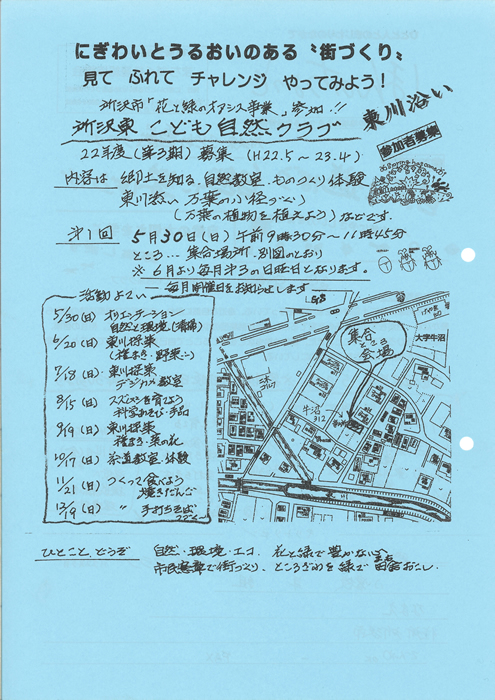 にぎわいとうるおいのある〝街づくり〟
見て ふれて チャレンジ やってみよう!
所沢市「花と緑のオアシス事業」参加!!
東川沿い
所沢東 こども自然クラブ
参加者募集
22年度(第3期)募集 (H22.5〜23.4)
内容は 郷土を知る、自然教室、ものづくり体験
東川添い 万葉の小径づくり
(万葉の植物を植えよう)などです。
第1回 5月30日(日) 午前9時30分〜11時45分
ところ… 集合場所 別図のとおり
※ 6月より毎月第3の日曜日となります。
毎月開催日をお知らせします
活動よてい
5/30(日) オリエンテーション
自然と環境(清掃)
6/20(日) 東川探索
7/18(日) 東川探索
デジカメ教室
8/15(日) スズムシを育てよう
科学あそび・手品
9/19(日) 東川探索
種まき・菜の花
10/17(日) 茶道教室・体験
11/21(日) つくって食べよう
焼きだんご
12/19(日) 〃 手打ちそば
集合
会場
大字牛沼
牛沼
312
ひとこと、どうぞ 自然・環境・エコ、花と緑で豊かな
市民憲章で街づくり、ところざわを緑で おこし